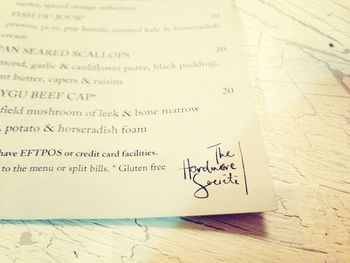 tartlet, spiced orange reduction
FISH DU JOUR* 20
prawns, peas, pay lentils, sautéed kale & horseradish
cream
PAN SEARED SCALLOPS 20
mond, garlic & cauliflower puree, black pudding,
nt butter, capers & raisins
YGU BEEF CAP* 20
field mushroom of leek & bone marrow
, potato & horseradish foam
have EFTPOS or credit card facilities.
to the menu or split bills. * Gluten free
The
Hardware
Societé